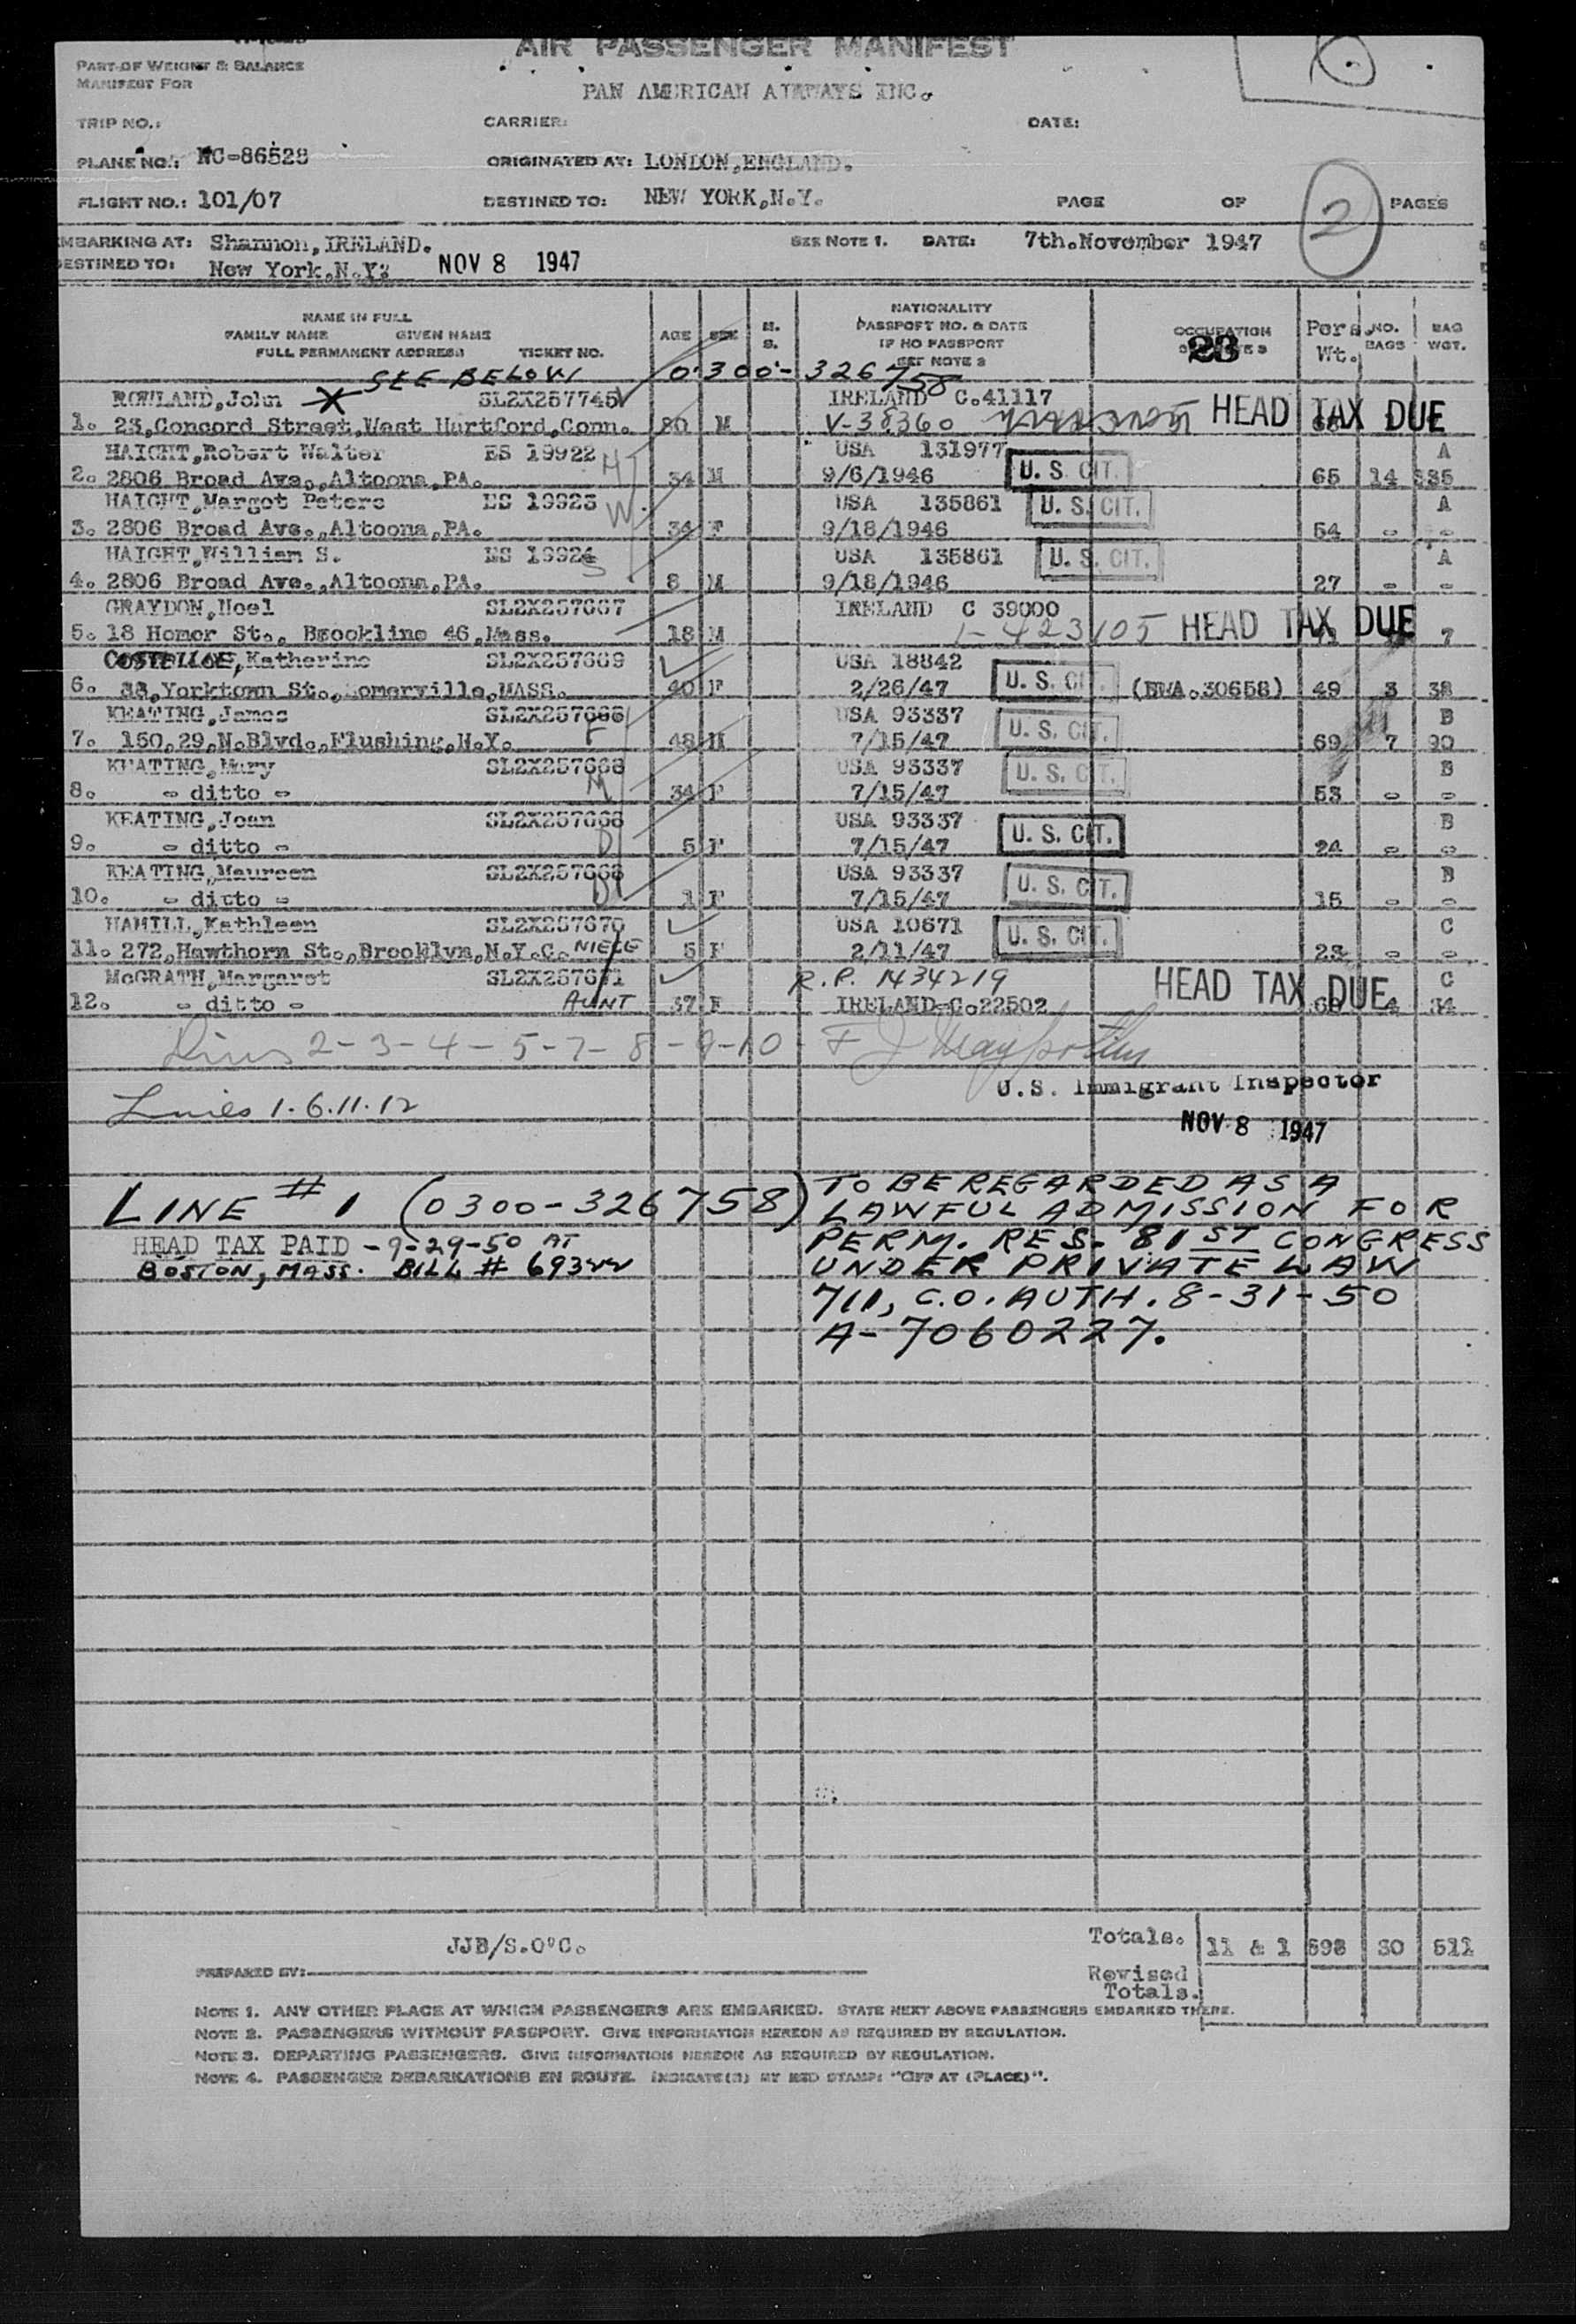 AIR PASSENGER MANIFEST
PART OF WEIGHT & BALANCE
MANIFEST FOR
PAN AMERICAN AIRWAYS INC.
TRIP NO.: CARRIER: DATE:
PLANE NO.: NC-86528 ORIGINATED AT: LONDON,ENGLAND.
FLIGHT NO.: 101/07 DESTINED TO: NEW YORK,N.Y. PAGE OF 2 PAGES
EMBARKING AT: Shannon,IRELAND. SEE NOTE 1. DATE: 7th.November 1947
DESTINED TO: New York,N.Y. NOV 8 1947
NAME IN FULL
FAMILY NAME GIVEN NAME
FULL PERMANENT ADDRESS TICKET NO.
AGE SEX M. S.
NATIONALITY
PASSPORT NO. & DATE
IF NO PASSPORT
SEE NOTE 2
OCCUPATION
23
Pers. Wt. NO. BAGS BAG WGT.
SEE BELOW 0300-326758
ROWLAND,John X SL2X257745 IRELAND C.41117
1. 23,Concord Street,West Hartford,Conn. 80 M V-38360 HEAD TAX DUE
HAIGHT,Robert Walter ES 19922 H USA 131977 A
2. 2806 Broad Ave.,Altoona,PA. 34 M 9/6/1946 U. S. CIT. 65 14 335
HAIGHT,Margot Peters ES 19923 W USA 135861 A
3. 2806 Broad Ave.,Altoona,PA. 34 F 9/18/1946 U. S. CIT. 54 - -
HAIGHT,William S. ES 19924 S USA 135861 A
4. 2806 Broad Ave.,Altoona,PA. 8 M 9/18/1946 U. S. CIT. 27 - -
GRAYDON,Noel SL2X257667 IRELAND C 39000
5. 18 Homer St., Brookline 46,Mass. 18 M I-423105 HEAD TAX DUE 7
COSTELLOE,Katherine SL2X257669 USA 18842
6. 33,Yorktown St.,Somerville,MASS. 40 F 2/26/47 U. S. CIT. (BWA.30658) 49 3 38
KEATING,James SL2X257668 F USA 93337 B
7. 150,29,N.Blvd.,Flushing,N.Y. 48 M 7/15/47 U. S. CIT. 69 7 90
KEATING,Mary SL2X257668 M USA 93337 B
8. - ditto - 34 F 7/15/47 U. S. CIT. 53 - -
KEATING,Joan SL2X257668 D USA 93337 B
9. - ditto - 5 F 7/15/47 U. S. CIT. 24 - -
KEATING,Maureen SL2X257668 D USA 93337 B
10. - ditto - 1 F 7/15/47 U. S. CIT. 15 - -
HAMILL,Kathleen SL2X257670 USA 10671 C
11. 272,Hawthorn St.,Brooklyn,N.Y.C. NIECE 5 F 2/11/47 U. S. CIT. 23 - -
McGRATH,Margaret SL2X257671 R.P. 1434219 C
12. - ditto - AUNT 37 F IRELAND-C.22502 HEAD TAX DUE 4 34
Lines 2-3-4-5-7-8-9-10-
U.S. Immigrant Inspector
Lines 1.6.11.12
NOV 8 1947
LINE # 1 (0300-326758) TO BE REGARDED AS A
LAWFUL ADMISSION FOR
HEAD TAX PAID - 9-29-50 AT PERM. RES. 81ST CONGRESS
BOSTON, MASS. BILL # UNDER PRIVATE LAW
711, C.O. AUTH. 8-31-50
A-7060227.
JJB/S.O'C. Totals. 11 & 1 598 30 511
PREPARED BY: Revised Totals.
NOTE 1. ANY OTHER PLACE AT WHICH PASSENGERS ARE EMBARKED. STATE NEXT ABOVE PASSENGERS EMBARKED THERE.
NOTE 2. PASSENGERS WITHOUT PASSPORT. GIVE INFORMATION HEREON AS REQUIRED BY REGULATION.
NOTE 3. DEPARTING PASSENGERS. GIVE INFORMATION HEREON AS REQUIRED BY REGULATION.
NOTE 4. PASSENGER DEBARKATIONS EN ROUTE. INDICATE(S) BY RED STAMP: "OFF AT (PLACE)".